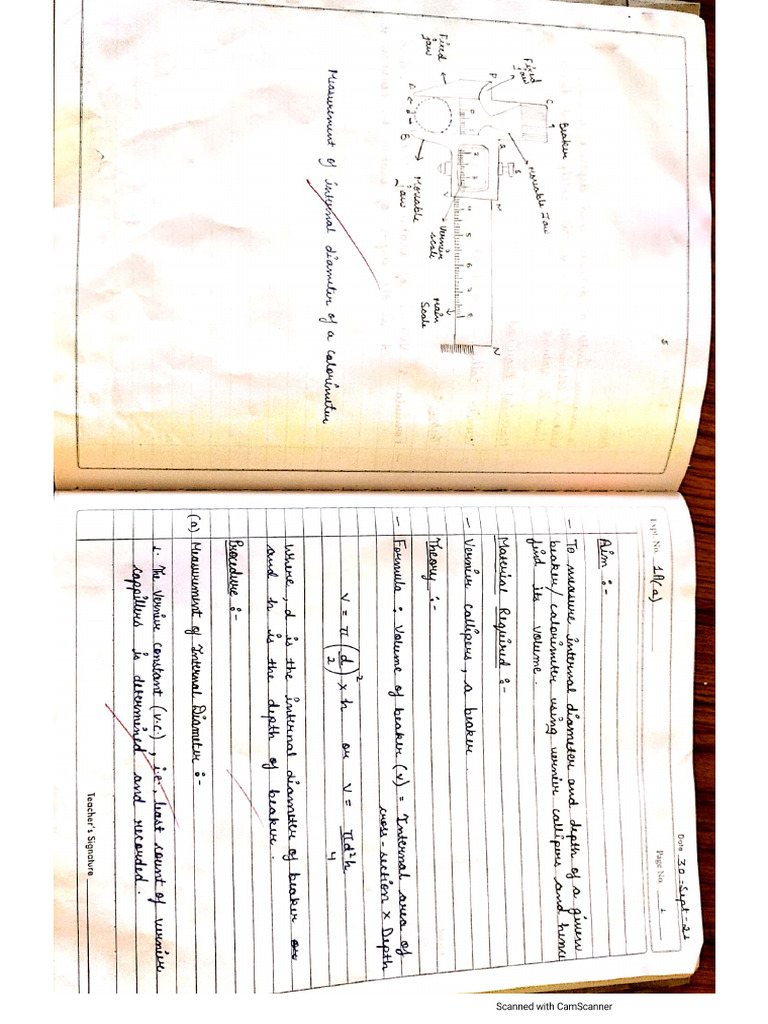 5
Beaker
Fixed
jaw
Movable Jaw
Fixed
jaw
C
P
Q
S
M
N
0 1 2 3 4 5 6 7 8
V
A ← d → B
Movable
jaw
Vernier
scale
Main
Scale
Measurement of internal diameter of a calorimeter
Date 30-Sept-21
Expt. No. 1A(a)
Page No. 1
Aim :-
- To measure internal diameter and depth of a given
beaker/calorimeter using vernier callipers and hence
find its volume.
Material Required :-
- Vernier callipers, a beaker
Theory :-
- Formula : Volume of beaker (V) = Internal area of
cross-section × Depth
V = π (d/2)² × h or V = πd²h/4
Where, d is the internal diameter of beaker
and h is the depth of beaker.
Procedure :-
(a) Measurement of Internal Diameter :-
1. The Vernier constant (V.C.), i.e., least count of vernier
cappillers is determined and recorded.
Teacher's Signature
Scanned with CamScanner